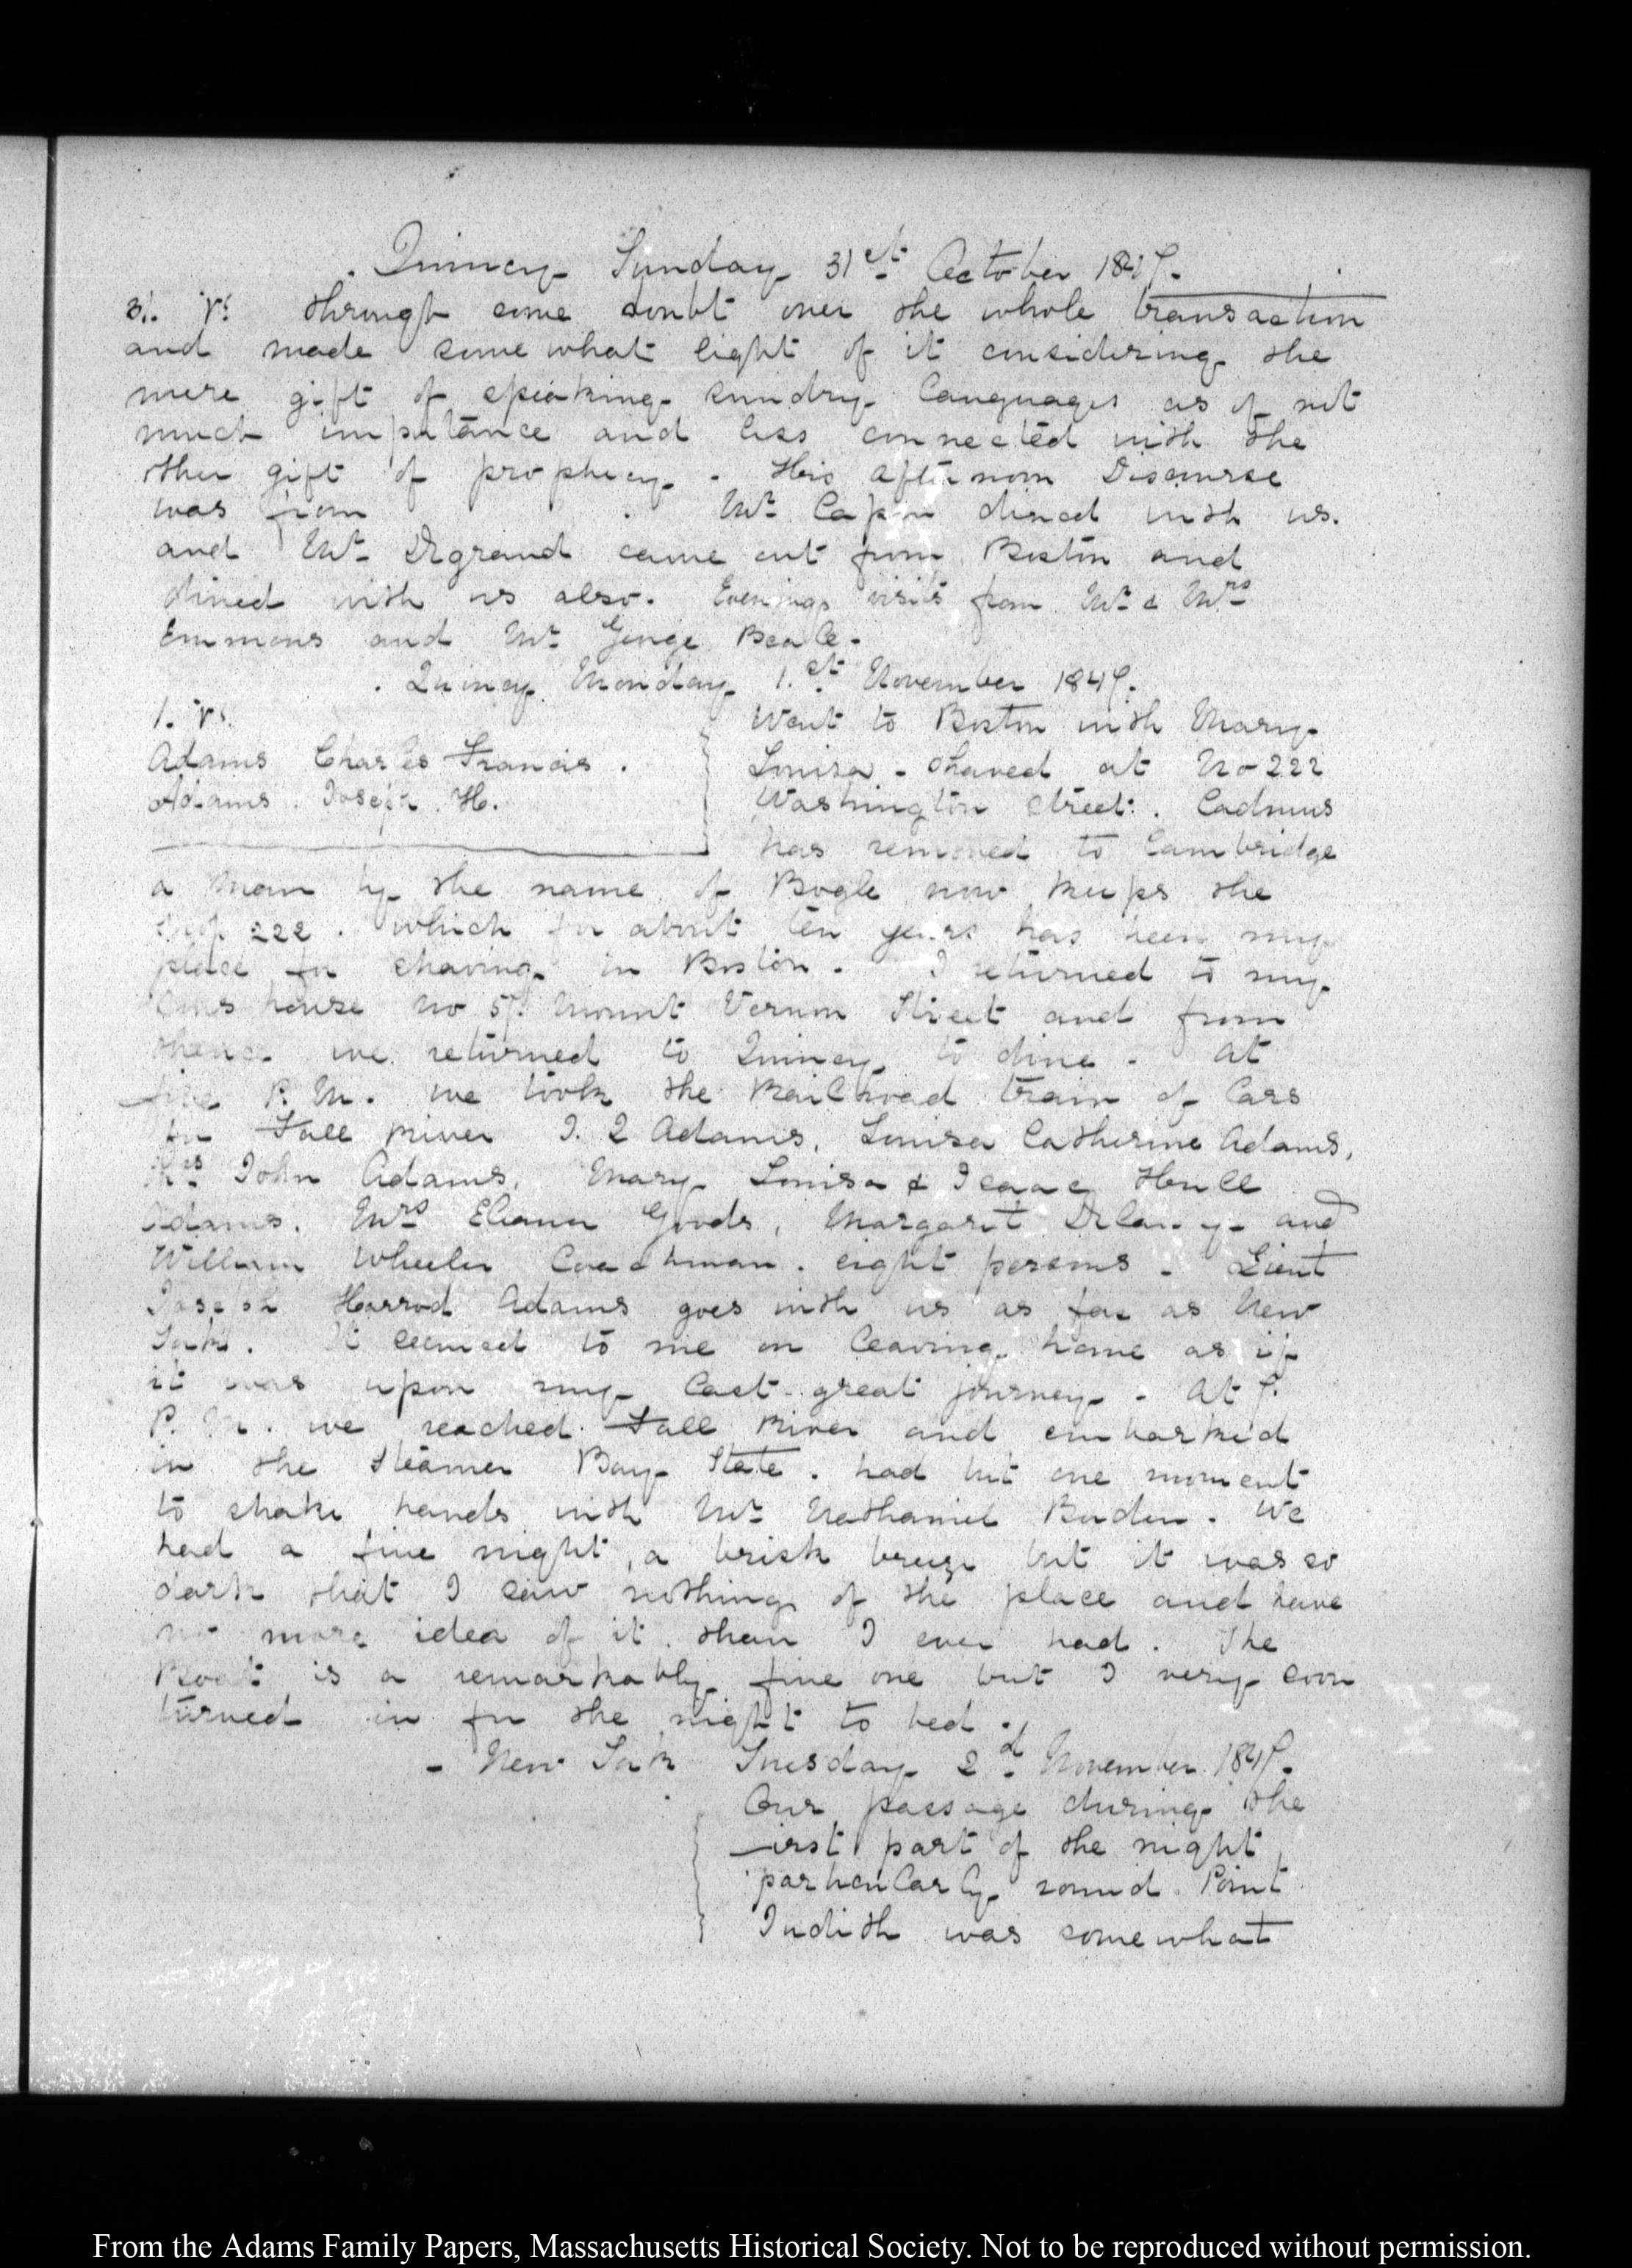 . Quincy Sunday 31st October 1847.
31. V. through some doubt over the whole transaction
and made somewhat light of it considering the
mere gift of speaking sundry languages as of not
much importance and less connected with the
other gift of prophecy. His afternoon Discourse
was from . Mr Capen dined with us.
and Mr Degrand came out from Boston and
dined with us also. Evening visits from Mr & Mrs
Emmons and Mr George Beale.
. Quincy Monday 1.st November 1847.
1. V.
Adams Charles Francis.
Adams. Joseph. H.
Went to Boston with Mary
Louisa - shaved at No 222
Washington Street. Cadmus
has removed to Cambridge
a man by the name of Bogle now keeps the
shop 222. which for about ten years has been my
place for shaving in Boston. I returned to my
Sons house No 57. Mount Vernon Street and from
thence we returned to Quincy to dine. At
five P.M. we took the Railroad train of Cars
for Fall River J. Q Adams, Louisa Catherine Adams,
Mrs John Adams, Mary Louisa & Isaac Hull
Adams. Mrs Eleanor Goods, Margaret Delany and
William Wheeler Coachman. eight persons. Lieut
Joseph Harrod Adams goes with us as far as New
York. It seemed to me on leaving home as if
it was upon my last great journey. At 7.
P.M. we reached Fall River and embarked
in the Steamer Bay State. had but one moment
to shake hands with Mr Nathaniel Borden. We
had a fine night, a brisk breeze but it was so
dark that I saw nothing of the place and have
no more idea of it than I ever had. The
Boat is a remarkably fine one but I very soon
turned in for the night to bed.
- New York Tuesday 2d November 1847.
Our passage during the
first part of the night
particularly round Point
Judith was somewhat
From the Adams Family Papers, Massachusetts Historical Society. Not to be reproduced without permission.